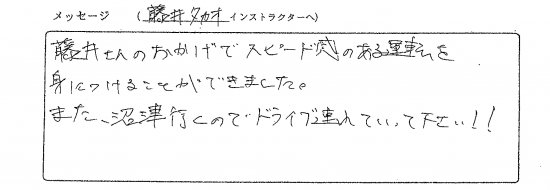 メッセージ （藤井タカオインストラクターへ）
藤井さんのおかげでスピード感のある運転を
身につけることができました。
また、沼津行くのでドライブ連れていって下さい！！